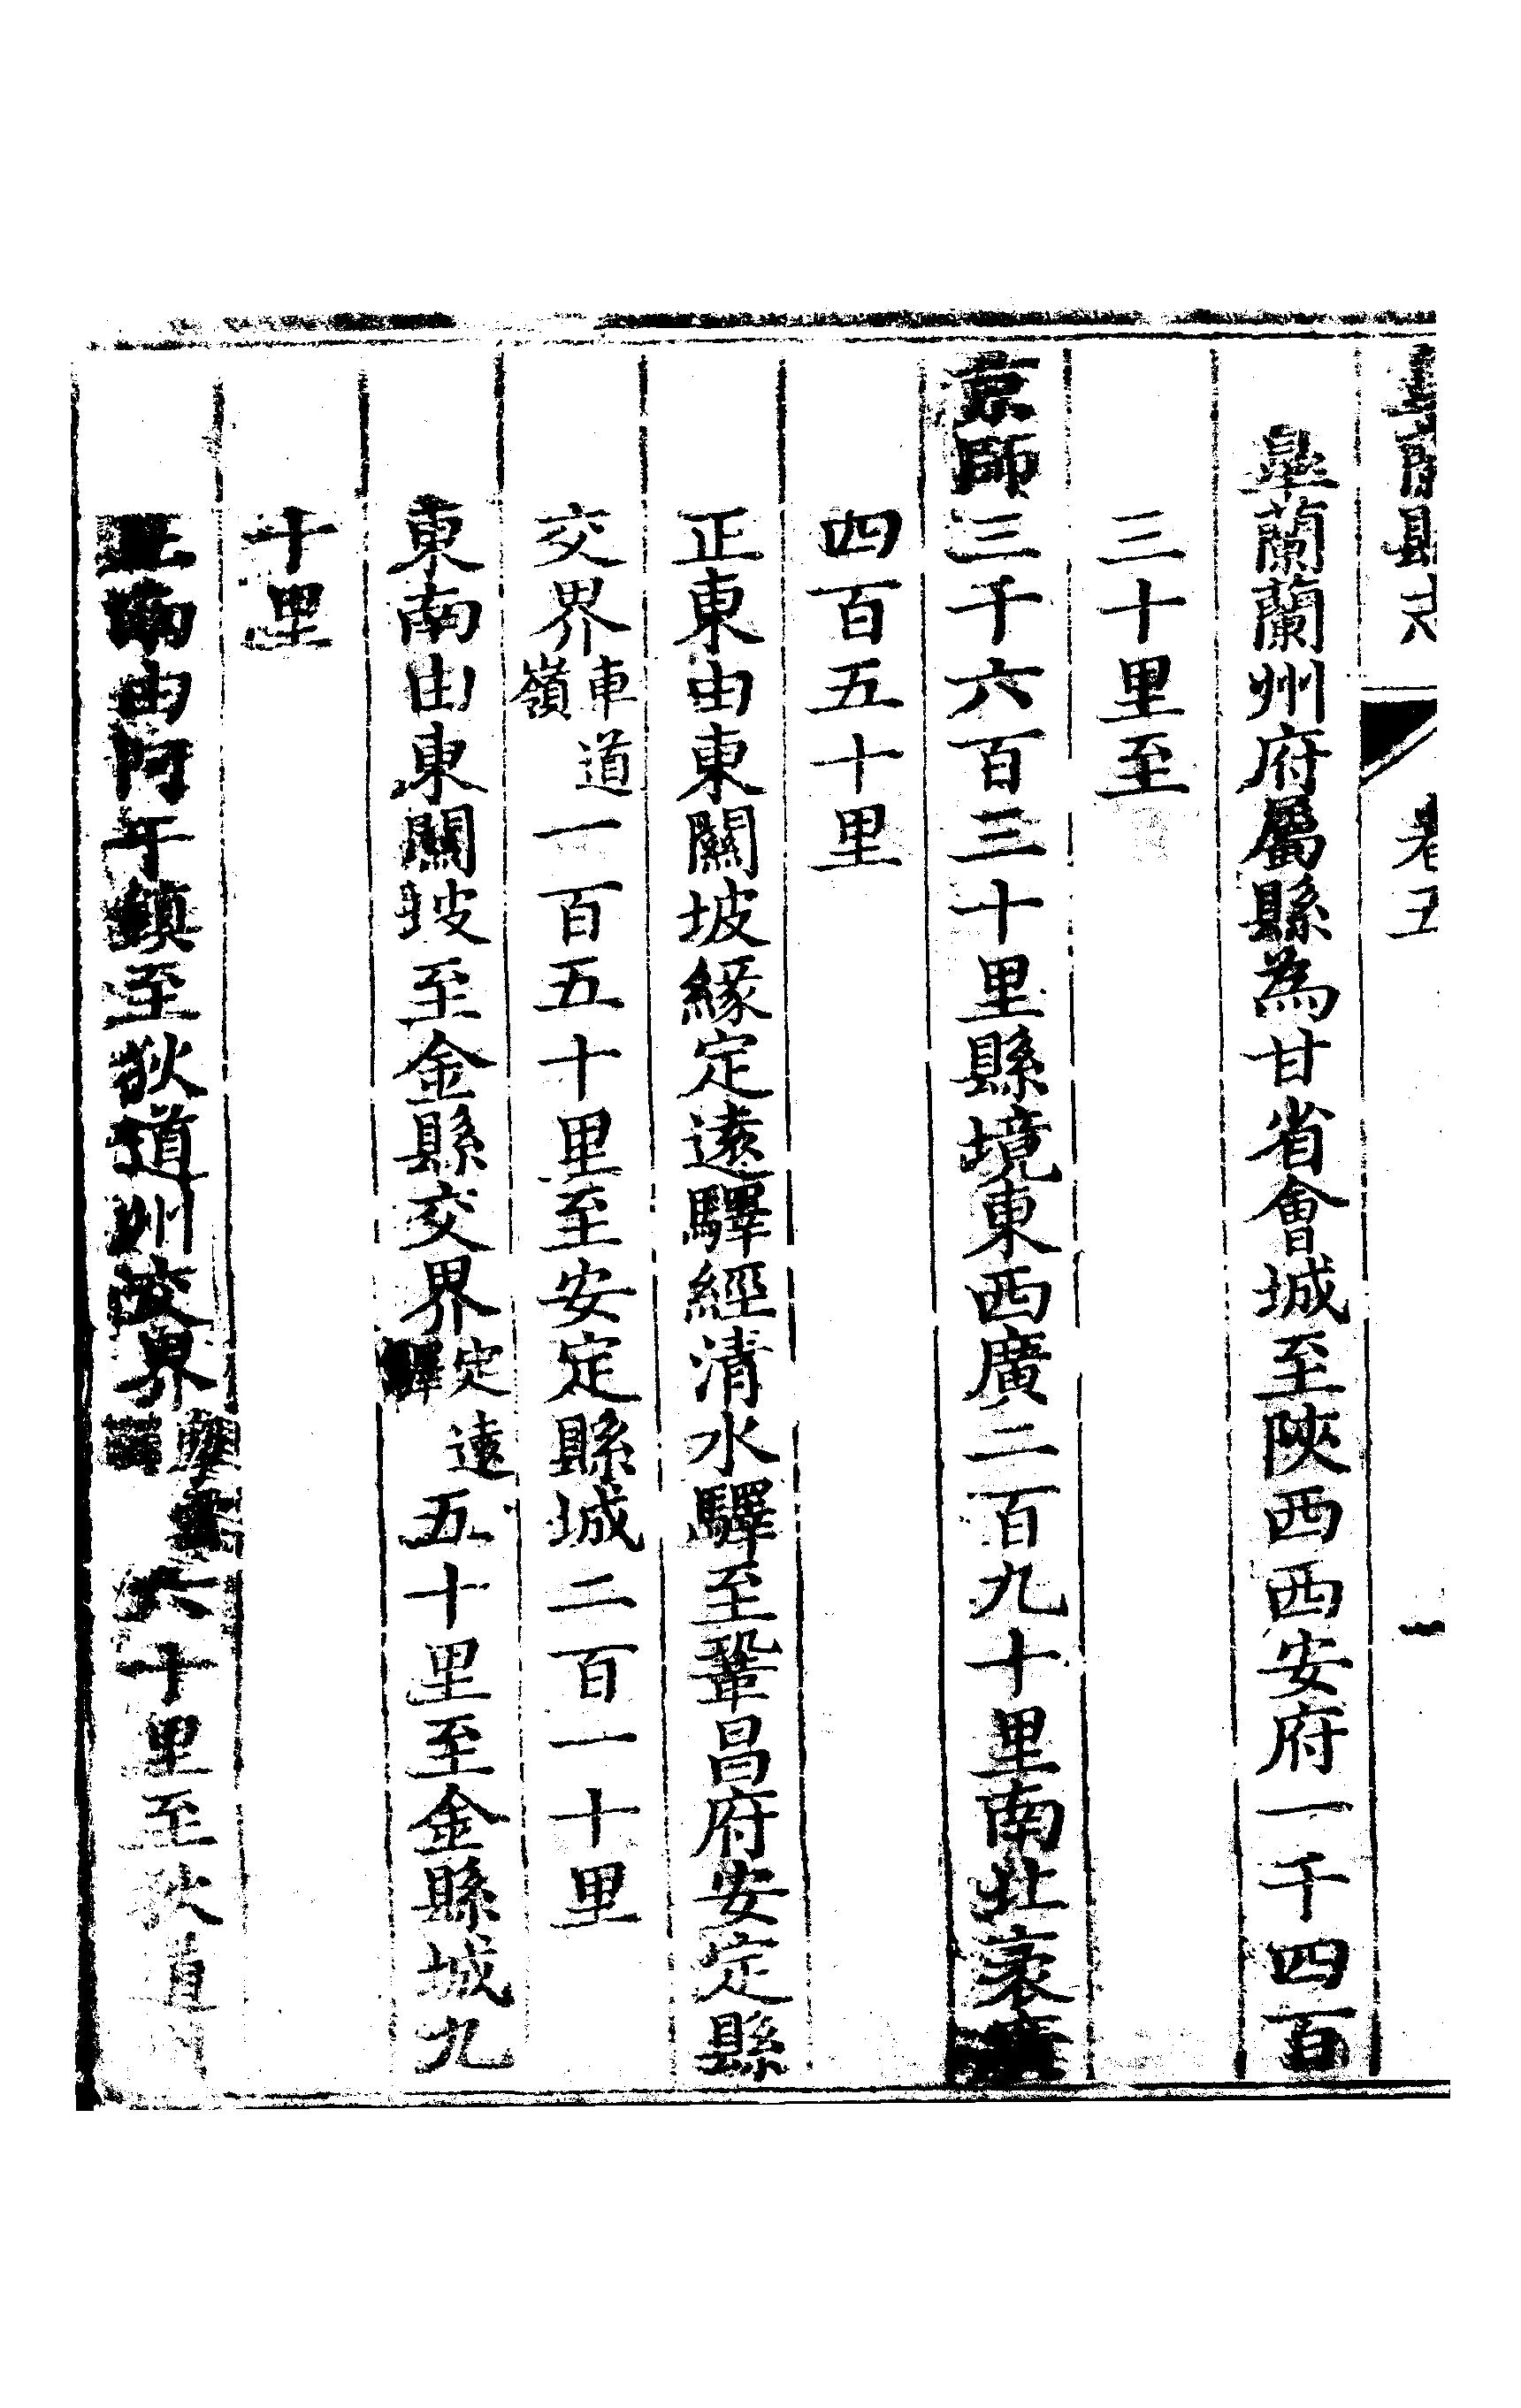 皋蘭縣志 卷五 一
皋蘭蘭州府屬縣為甘省會城至陝西西安府一千四百
三十里至
京師三千六百三十里縣境東西廣二百九十里南北袤
四百五十里
正東由東關坡緣定遠驛經清水驛至鞏昌府安定縣
交界車道嶺一百五十里至安定縣城二百一十里
東南由東關坡至金縣交界定遠驛五十里至金縣城九
十里
正南由阿干鎮至狄道州交界 六十里至狄道